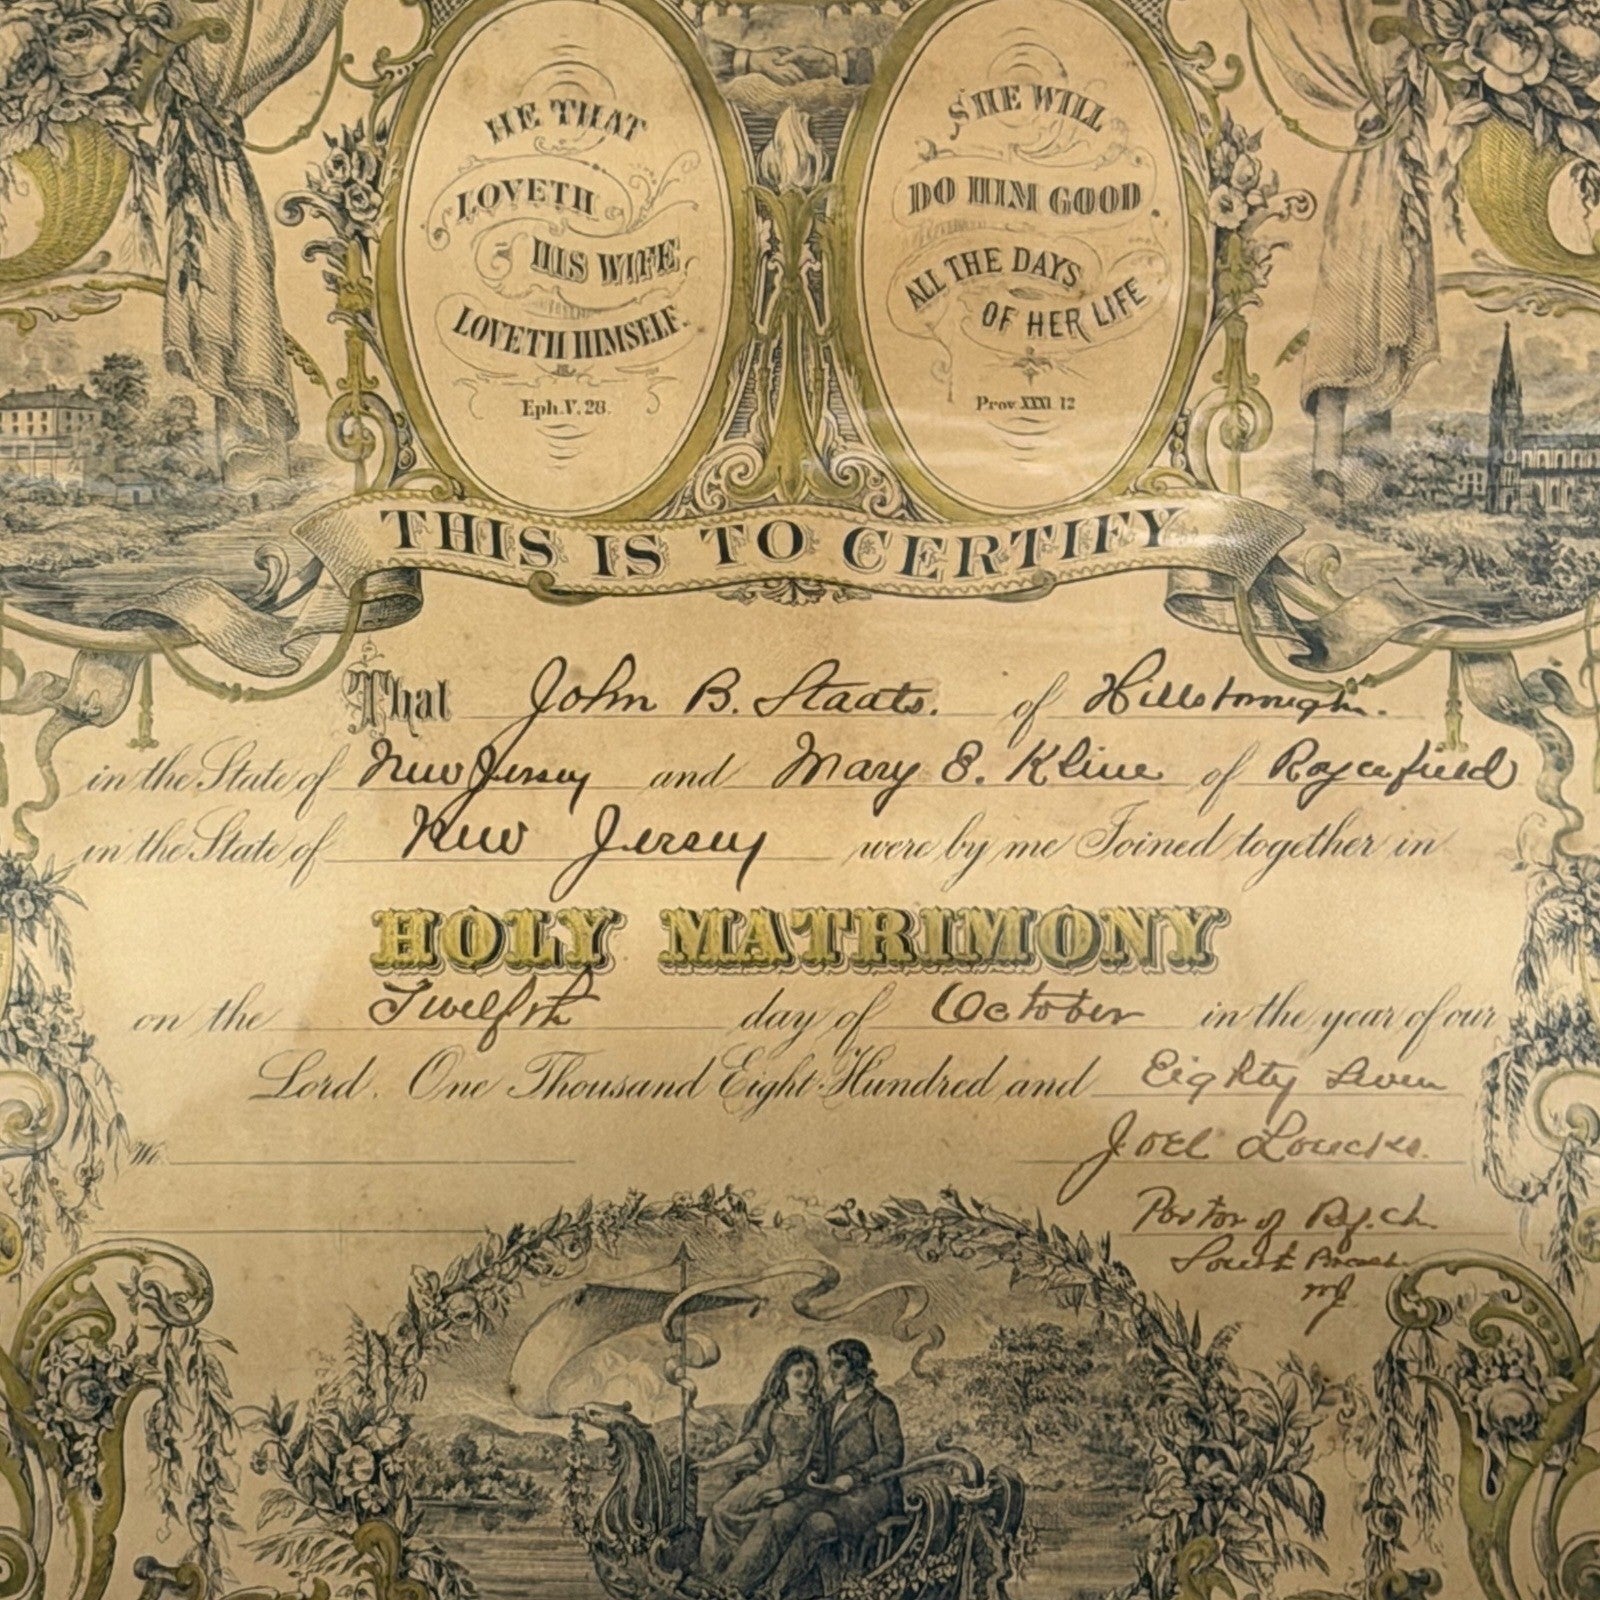 HE THAT
LOVETH
HIS WIFE
LOVETH HIMSELF.
Eph. V. 28.
SHE WILL
DO HIM GOOD
ALL THE DAYS
OF HER LIFE
Prov. XXXI. 12
THIS IS TO CERTIFY
That John B. Staats. of Hillsborough.
in the State of New Jersey and Mary E. Kline of Roycefield
in the State of New Jersey were by me Joined together in
HOLY MATRIMONY
on the Twelfth day of October in the year of our
Lord. One Thousand Eight Hundred and Eighty Seven
Joel Loucks.
Pastor of Ref. Ch.
South Branch.
NJ.